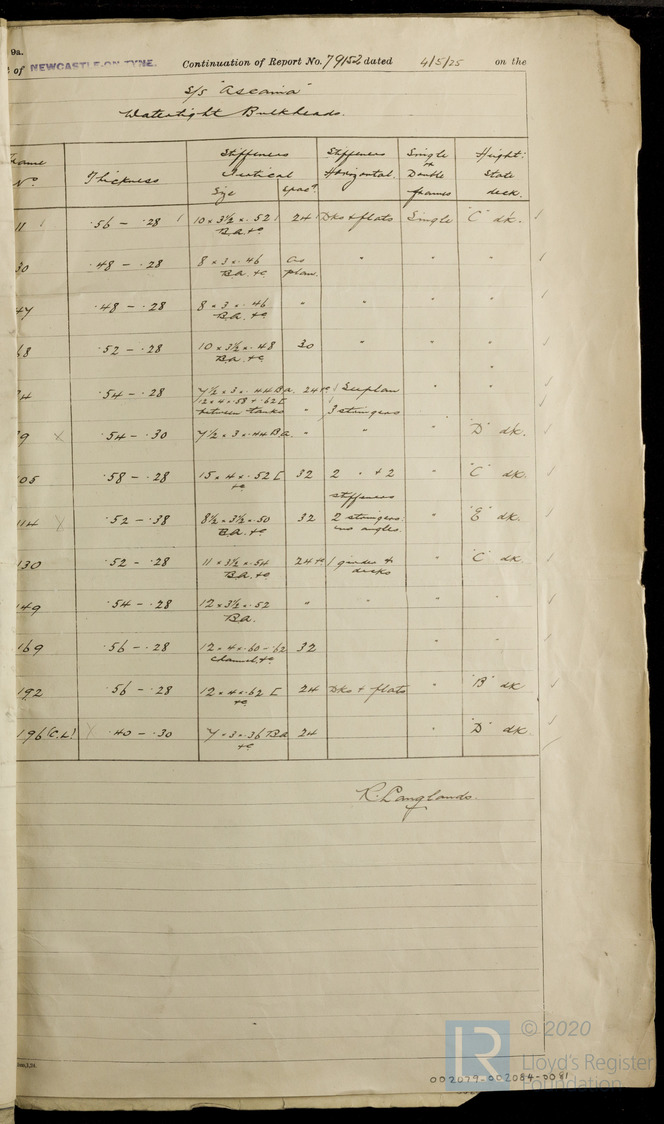 9a.
of NEWCASTLE-ON-TYNE. Continuation of Report No. 79152 dated 4/5/25 on the
S/S "Ascania"
Watertight Bulkheads.
Frame No. Thickness Stiffeners Vertical Size Spacg. Stiffeners Horizontal. Single or Double frames Height: State deck.
11 .56 - .28 10 x 3½ x .52 B.A. &c 24 Dks & flats Single "C" dk.
30 .48 - .28 8 x 3 x .46 B.A. &c as plan. " " "
47 .48 - .28 8 x 3 x .46 B.A. &c " " " "
68 .52 - .28 10 x 3½ x .48 B.A. &c 30 " " "
"
4 .54 - .28 7½ x 3 x .44 BA. 24 &c 1 See plan " "
12 x 4 x .58 & .62 [
between tanks " 3 stringers
9 x .54 - .30 7½ x 3 x .44 BA. " " "D" dk.
05 .58 - .28 15 x 4 x .52 [ &c 32 2 " & 2 stiffeners " "C" dk.
114 x .52 - .38 8½ x 3½ x .50 B.A. &c 32 2 stringers angles. " "E" dk.
130 .52 - .28 11 x 3½ x .54 B.A. &c 24 &c 1 girder & decks " "C" dk.
149 .54 - .28 12 x 3½ x .52 B.A. " " " "
169 .56 - .28 12 x 4 x .60 - .62 Channel &c 32 " "
192 .56 - .28 12 x 4 x .62 [ &c 24 Dks & flats " "B" dk
196 (C.L.) x .40 - .30 7 x 3 x .36 BA &c 24 " "D" dk.
R. Langlands.
© 2020
LR Lloyd's Register
Foundation
002079-002084-0081